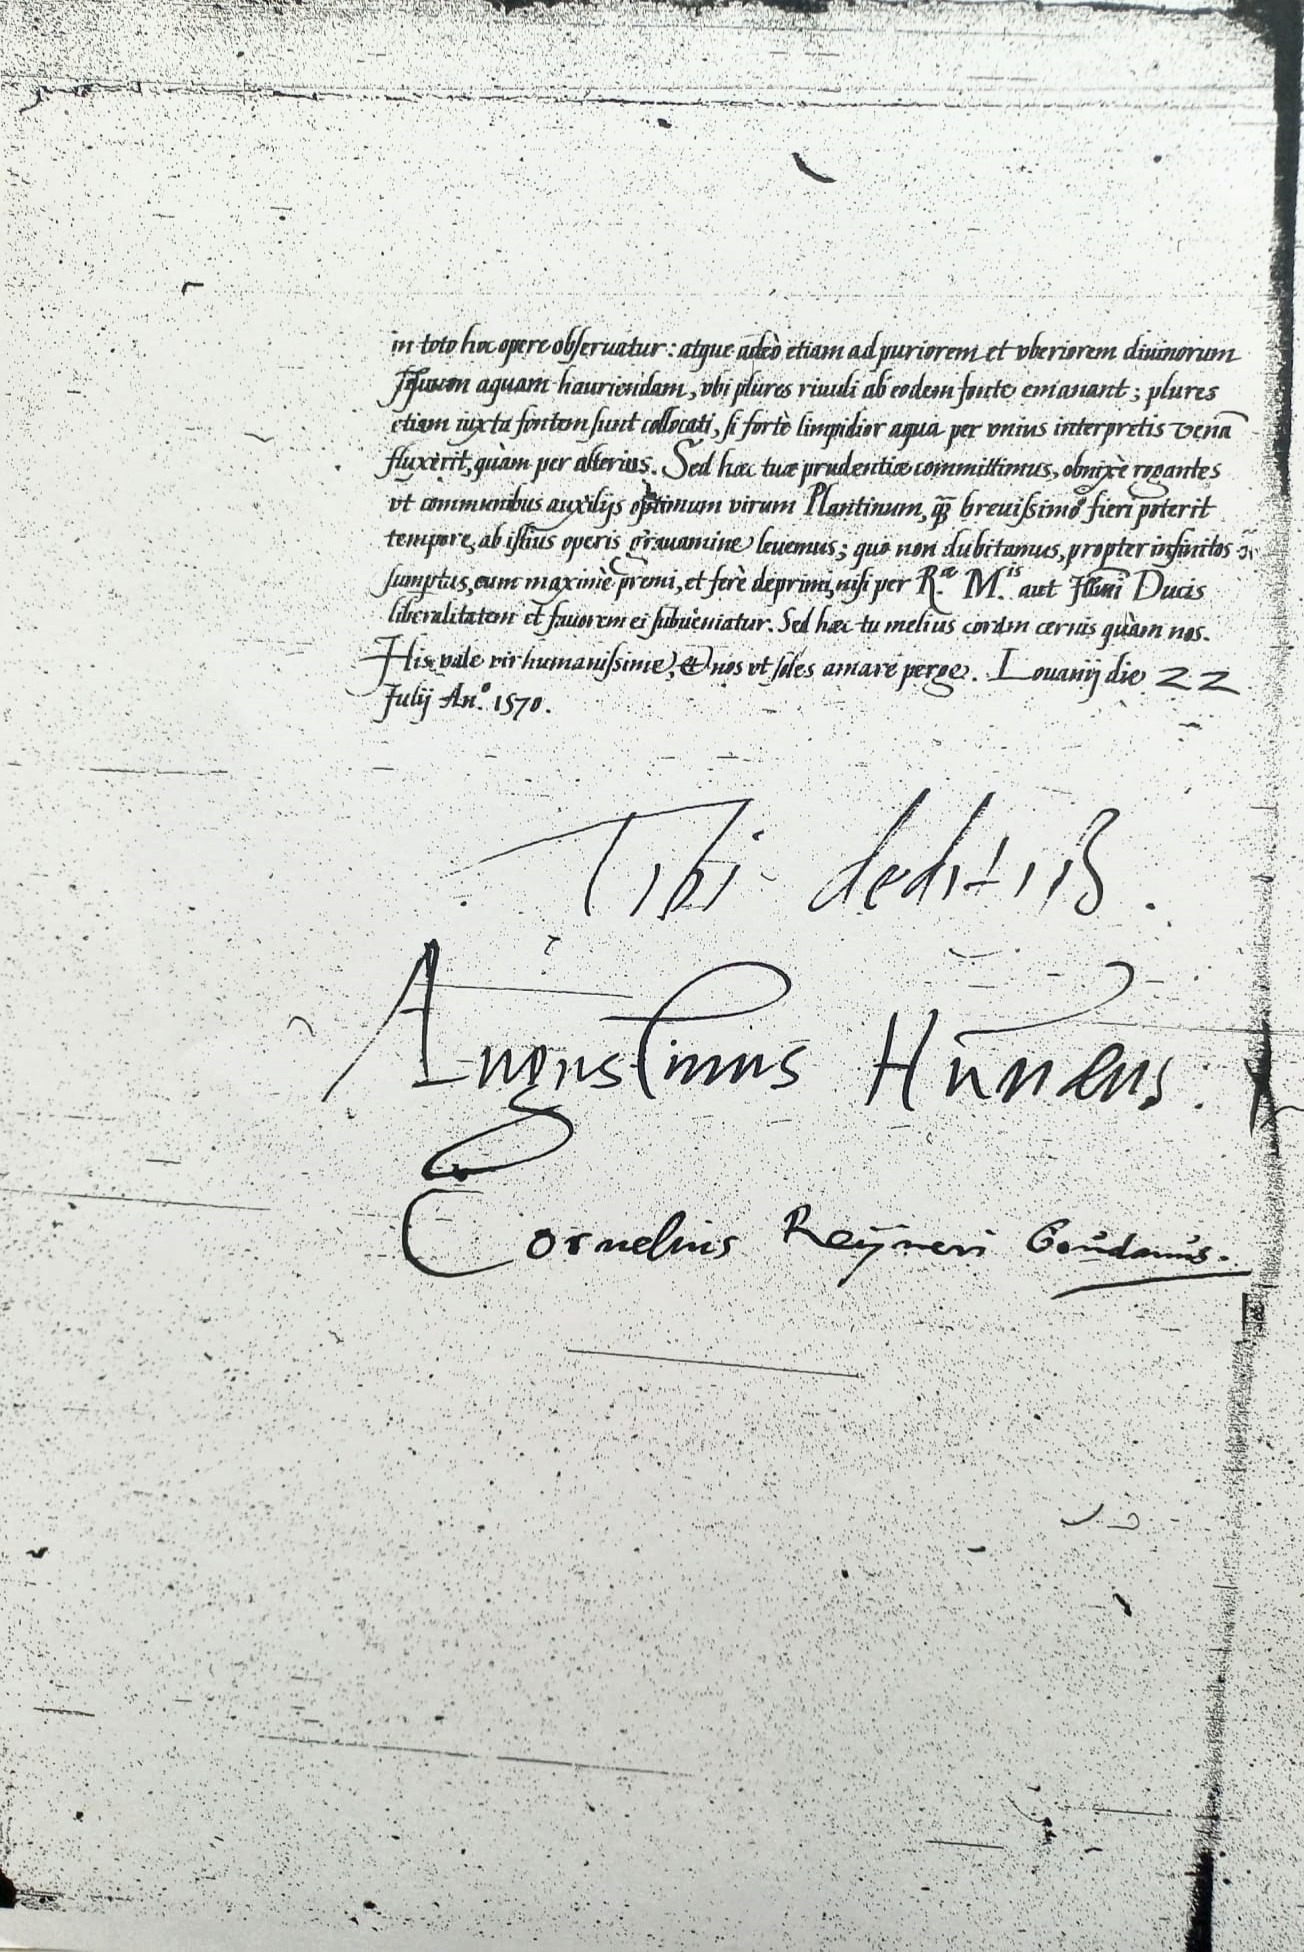 in toto hoc opere obseruatur: atque adeò etiam ad puriorem et vberiorem diuinorum
aquam hauriendam, vbi plures riuuli ab eodem fonte emanant; plures
etiam iuxta fontem sunt collocati, si fortè limpidior aqua per vnius interpretis venā
fluxerit, quàm per alterius. Sed hæc tuæ prudentiæ committimus, obnixè rogantes
vt communibus auxilijs optimum virum Plantinum, breuissimo fieri poterit
tempore, ab istius operis grauamine leuemus; quo non dubitamus, propter infinitos
sumptus, eum maximè premi, et ferè deprimi, nisi per R.æ M.is aut Ducis
liberalitatem et fauorem ei subueniatur. Sed hæc tu melius coram cernis quàm nos.
His vale vir humanissime, et nos vt soles amare perge. Louanij die 22
Julij An.o 1570.
Tibi deditiß.
Augustinus Hunnæus.
Cornelius Reyneri Goudanus.